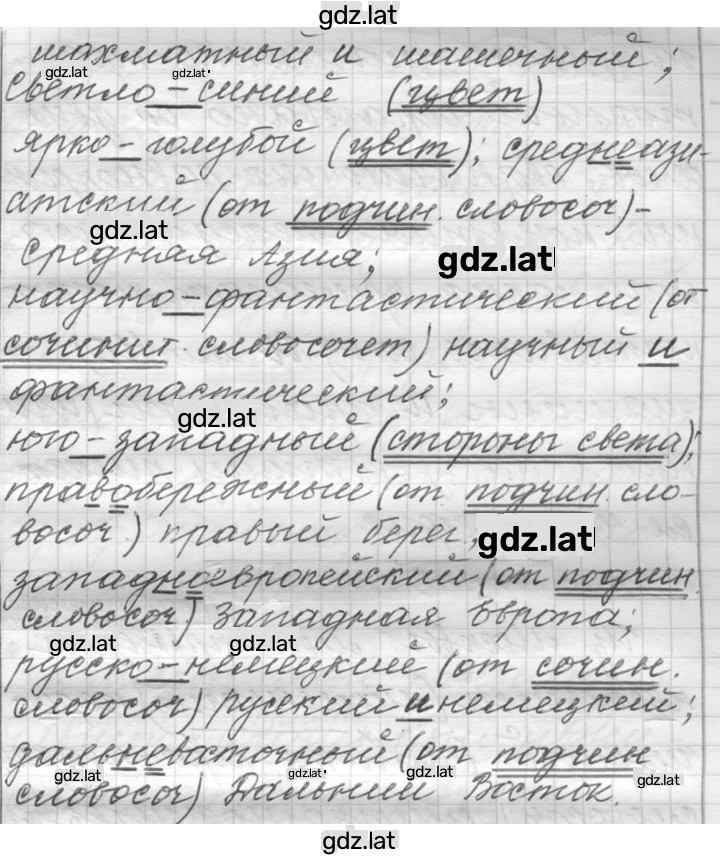 gdz.lat
шахматный и шашечный;
gdz.lat gdz.lat
светло-синий (цвет)
ярко-голубой (цвет); среднеази-
атский (от подчин. словосоч)-
gdz.lat
средняя Азия;
gdz.lat
научно-фантастический (от
сочинит. словосочет) научный и
фантастический;
gdz.lat
юго-западный (стороны света);
правобережный (от подчин. сло-
восоч.) правый берег;
gdz.lat
западноевропейский (от подчин.
словосоч) Западная Европа;
gdz.lat gdz.lat
русско-немецкий (от сочин.
словосоч) русский и немецкий;
дальневосточный (от подчин
gdz.lat gdz.lat gdz.lat gdz.lat
словосоч) Дальний Восток.
gdz.lat